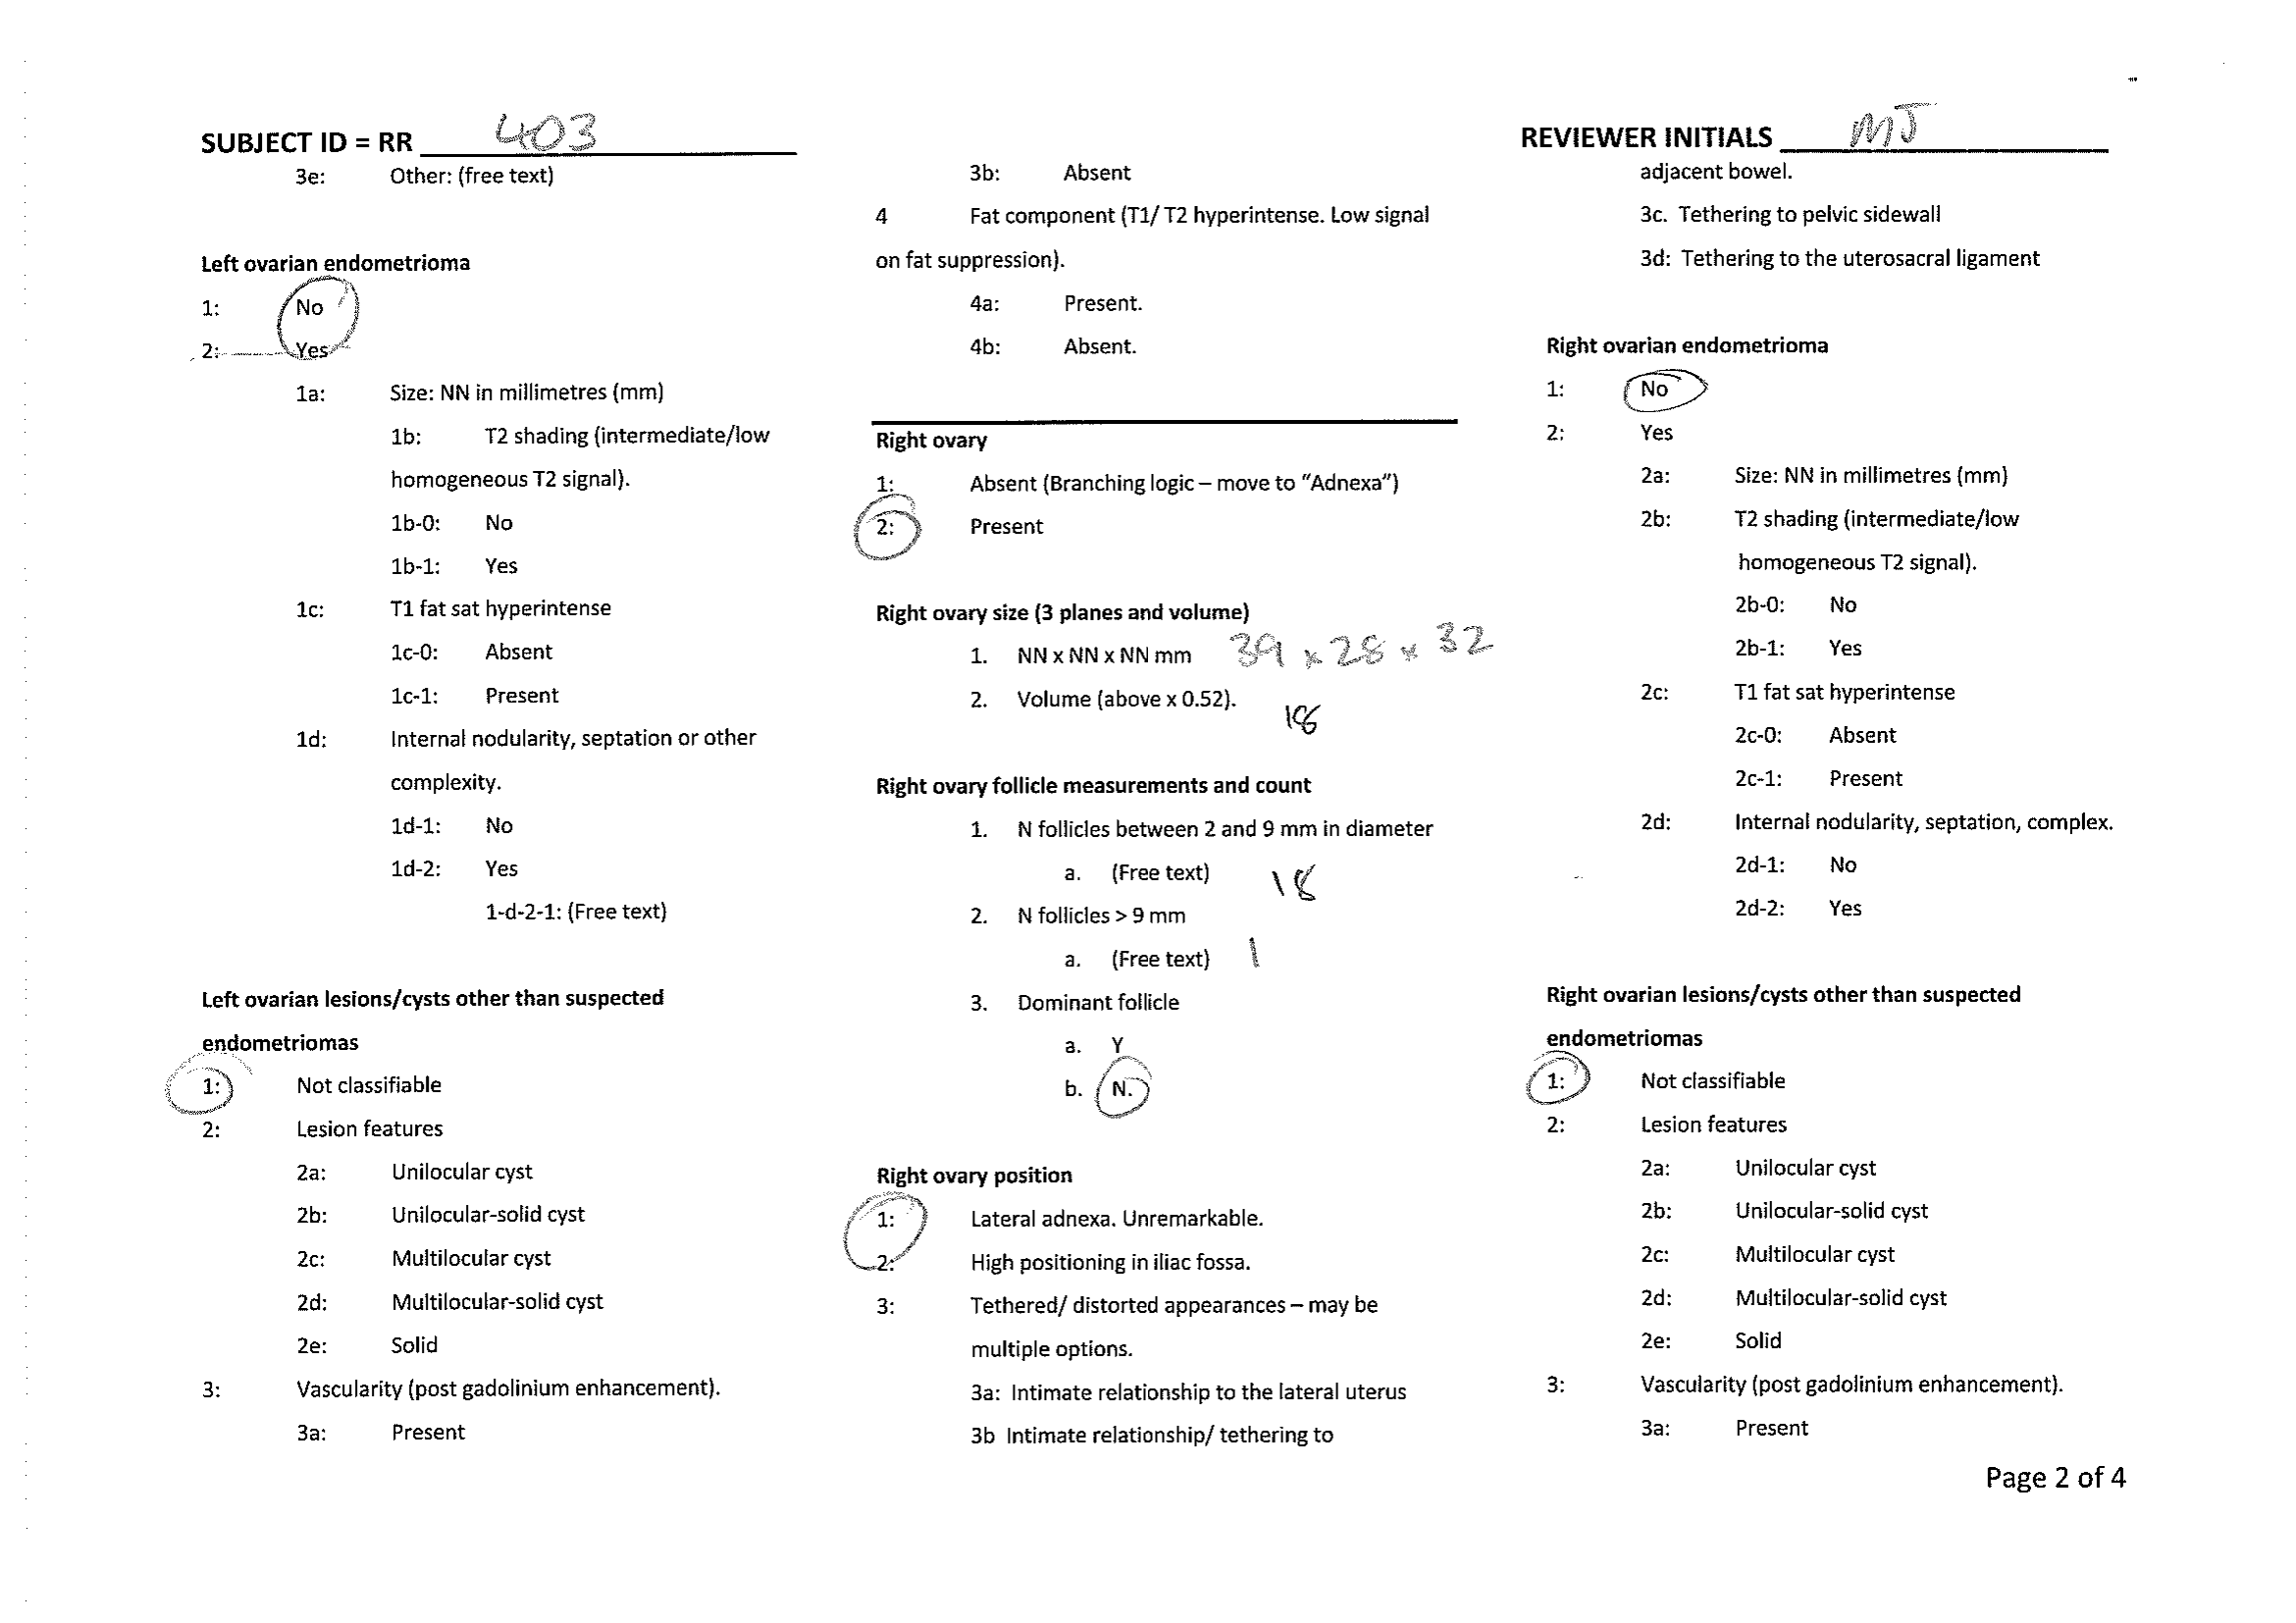 SUBJECT ID = RR 403
3e: Other: (free text)
Left ovarian endometrioma
1: No
2: Yes
1a: Size: NN in millimetres (mm)
1b: T2 shading (intermediate/low
homogeneous T2 signal).
1b-0: No
1b-1: Yes
1c: T1 fat sat hyperintense
1c-0: Absent
1c-1: Present
1d: Internal nodularity, septation or other
complexity.
1d-1: No
1d-2: Yes
1-d-2-1: (Free text)
Left ovarian lesions/cysts other than suspected
endometriomas
1: Not classifiable
2: Lesion features
2a: Unilocular cyst
2b: Unilocular-solid cyst
2c: Multilocular cyst
2d: Multilocular-solid cyst
2e: Solid
3: Vascularity (post gadolinium enhancement).
3a: Present
3b: Absent
4 Fat component (T1/ T2 hyperintense. Low signal
on fat suppression).
4a: Present.
4b: Absent.
Right ovary
1: Absent (Branching logic – move to “Adnexa”)
2: Present
Right ovary size (3 planes and volume)
1. NN x NN x NN mm 39 x 28 x 32
2. Volume (above x 0.52).
18
Right ovary follicle measurements and count
1. N follicles between 2 and 9 mm in diameter
a. (Free text) 18
2. N follicles > 9 mm
a. (Free text) 1
3. Dominant follicle
a. Y
b. N.
Right ovary position
1: Lateral adnexa. Unremarkable.
2: High positioning in iliac fossa.
3: Tethered/ distorted appearances – may be
multiple options.
3a: Intimate relationship to the lateral uterus
3b Intimate relationship/ tethering to
REVIEWER INITIALS MJ
adjacent bowel.
3c. Tethering to pelvic sidewall
3d: Tethering to the uterosacral ligament
Right ovarian endometrioma
1: No
2: Yes
2a: Size: NN in millimetres (mm)
2b: T2 shading (intermediate/low
homogeneous T2 signal).
2b-0: No
2b-1: Yes
2c: T1 fat sat hyperintense
2c-0: Absent
2c-1: Present
2d: Internal nodularity, septation, complex.
2d-1: No
2d-2: Yes
Right ovarian lesions/cysts other than suspected
endometriomas
1: Not classifiable
2: Lesion features
2a: Unilocular cyst
2b: Unilocular-solid cyst
2c: Multilocular cyst
2d: Multilocular-solid cyst
2e: Solid
3: Vascularity (post gadolinium enhancement).
3a: Present
Page 2 of 4